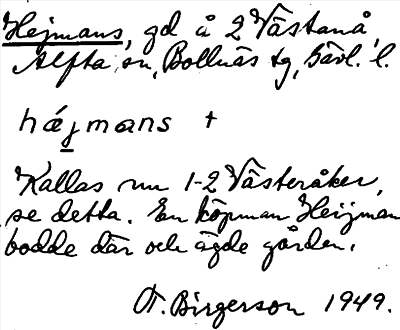 Hejmans, gd å 2 Västanå,
Alfta sn, Bollnäs tg, Gävl. l.
håjmans +
Kallas nu 1-2 Västeråker,
se detta. En köpman Heijman
bodde där och ägde gården.
A. Birgerson 1949.